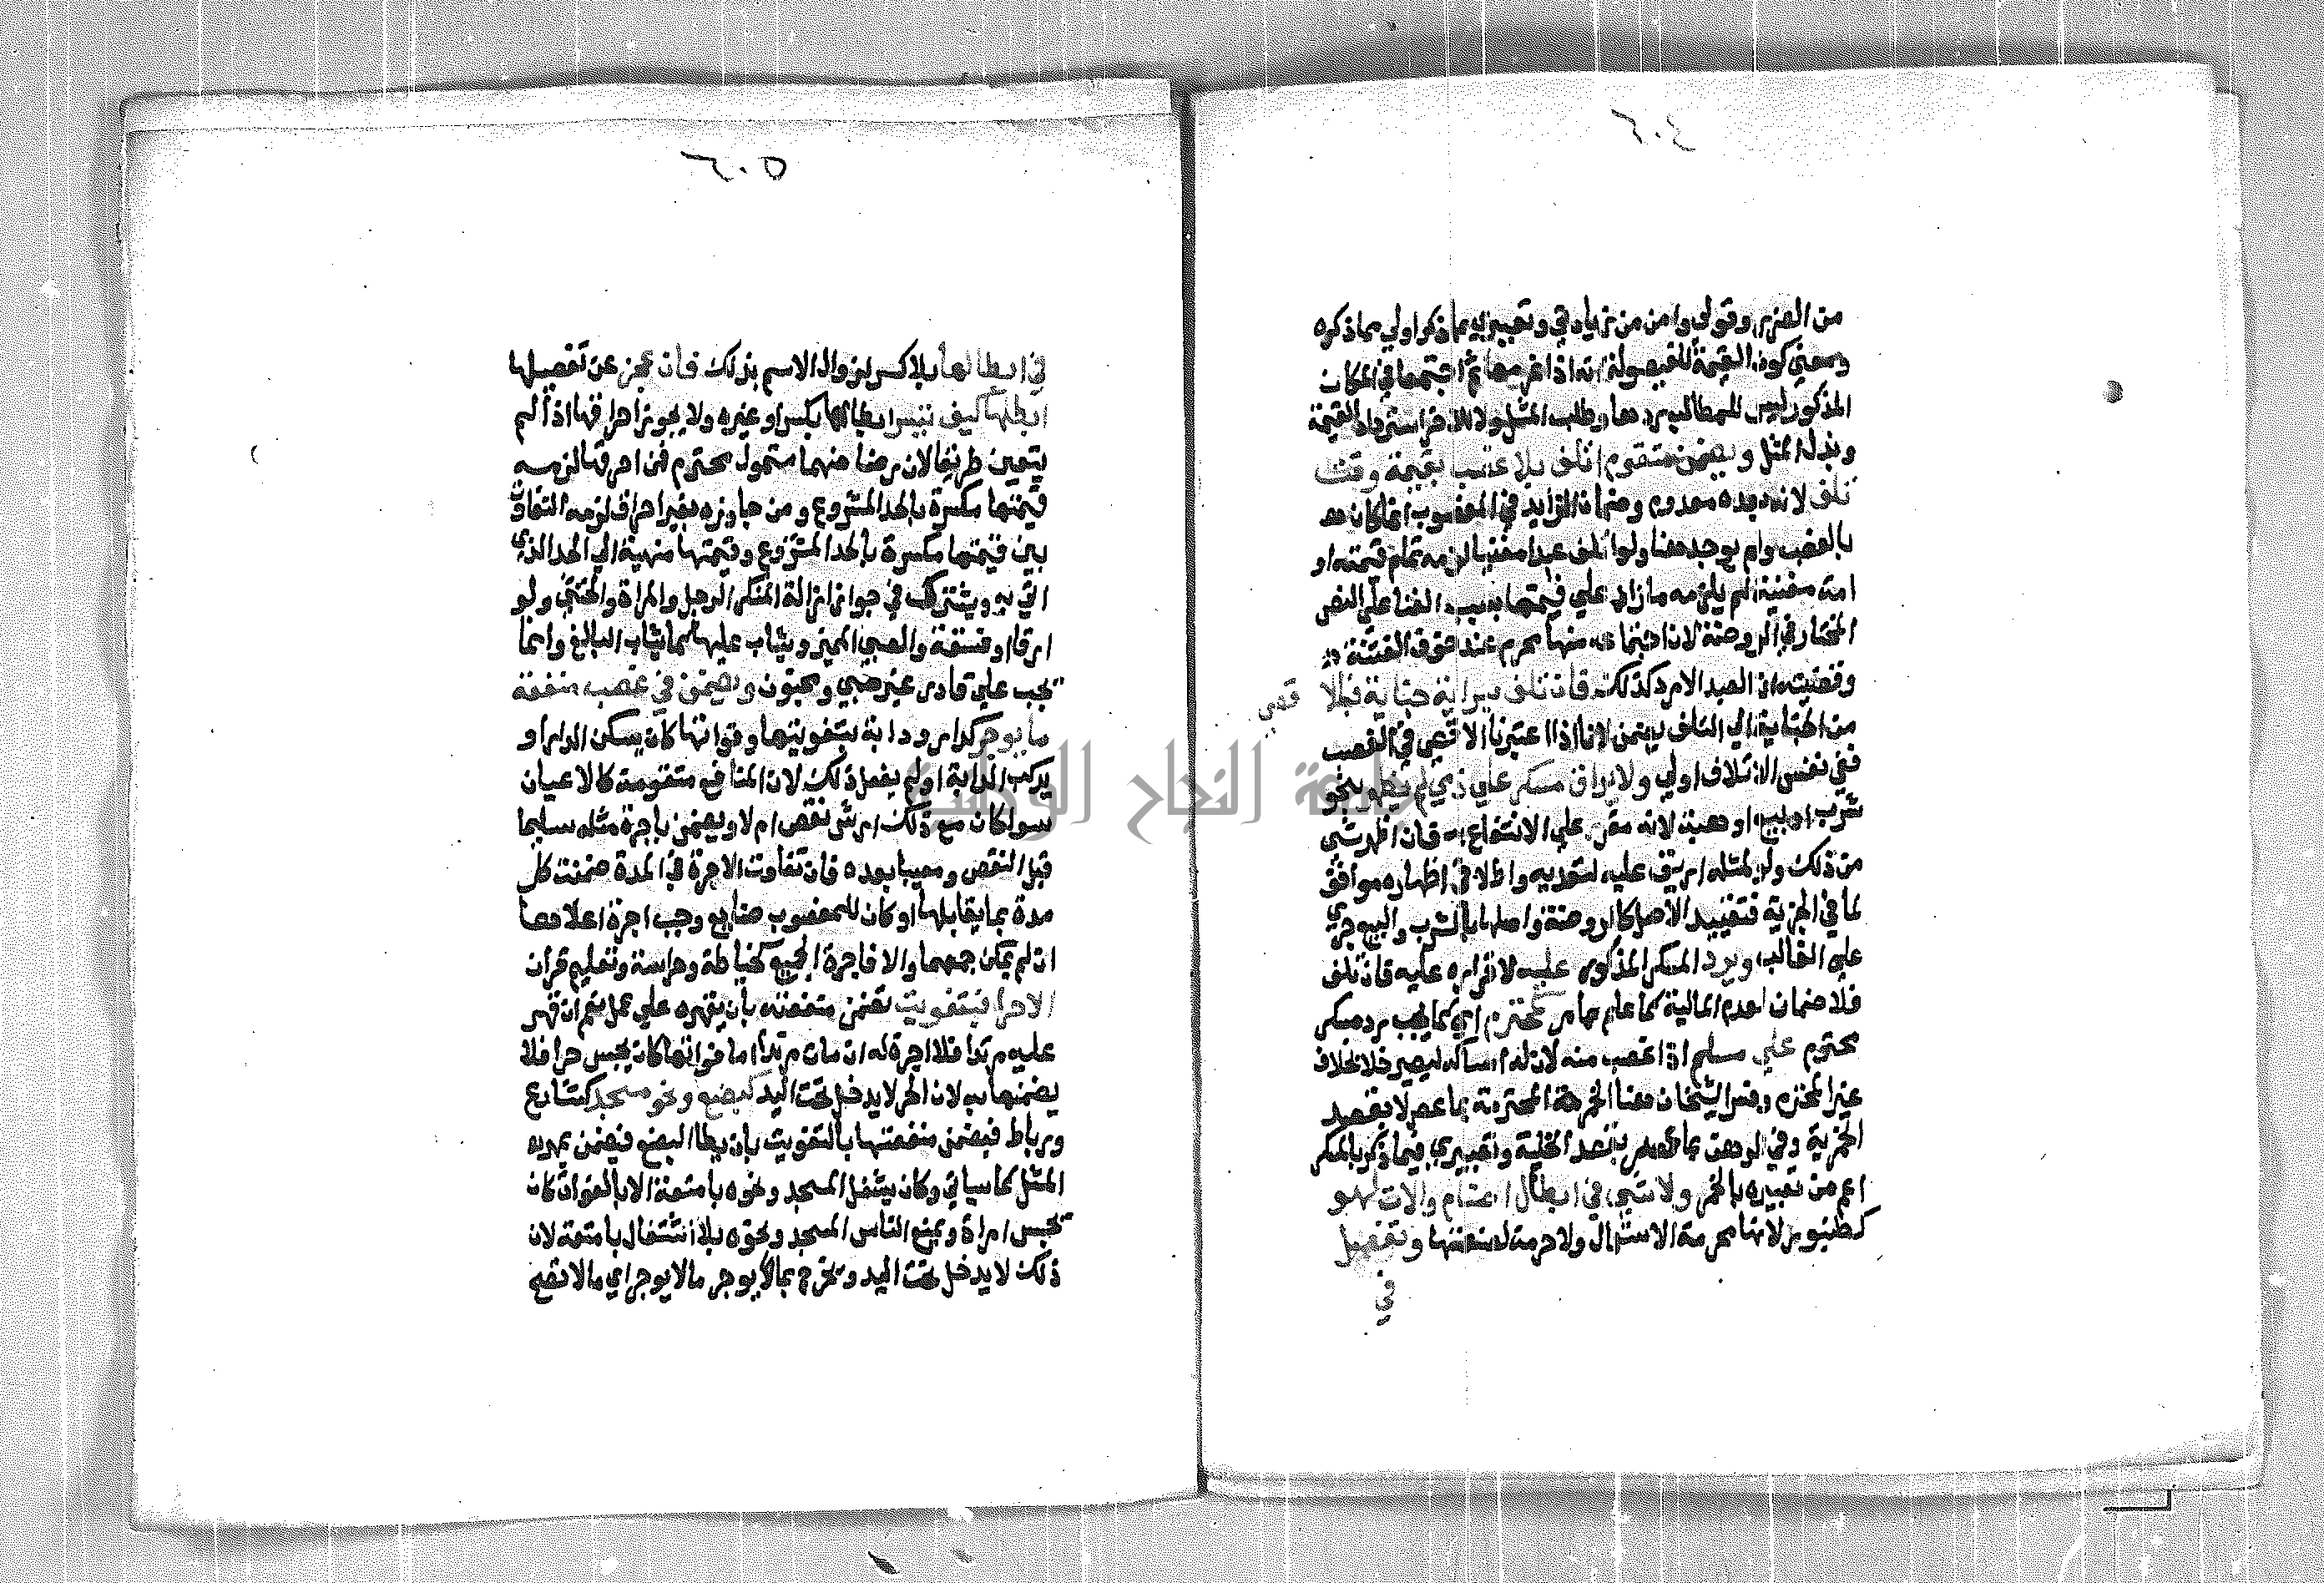 ٦٠٤
من الضرر وقولي وامن من زيادتي وتعبيري بما ذكر اولي مما ذكره
ومعني كون القيمة للفيصولة انه اذا غرمها ثم اجتمعا في المكان
المذكور ليس للمطالب ردها وطلب المثل ولا للاخر استرداد القيمة
وبذل المثل ويضمن متقوم اتلف بلا غصب بقيمة وقت
تلف لانه بعده معدوم وضمان الزايد في المغصوب انما كان
بالغصب ولم يوجد هنا ولو اتلف عبدا مغنيا لزمه تمام قيمته او
امة مغنية لم يلزمه ما زاد علي قيمتها بسبب الغنا علي النص
المختار في الروضة لان استماعه منها محرم عند خوف الفتنة
وقضيته ان العبد الامرد كذلك فان تلف بسراية جناية فبالاقصي
من الجناية الي التلف يضمن لانا اذا اعتبرنا الاقصي في الغصب
ففي نفس الاتلاف اولي ولا يراق مسكر علي ذمي لم يظهره بنحو
شرب او بيع او هبة لانه مقر علي الانتفاع به فان اظهر شي
من ذلك ولو لمثله اريق عليه لتعديه واطلاقي اظهاره موافق
لما في الجزية فتقييد الاصل كالروضة واصلها بالشرب والبيع جري
علي الغالب ويرد المسكر المذكور عليه لاقراره عليه فان تلف
فلا ضمان لعدم المالية كما علم مما مر كمحترم اي كما يجب رد مسكر
محترم علي مسلم اذا غصب منه لان له امساكه ليصير خلا بخلاف
غير المحترم وفسر الشيخان هنا الخمرة المحترمة بما عصر لا بقصد
الخمرية وفي الرهن بما عصر بقصد الخلية وتعبيري فيما ذكر بالمسكر
اعم من تعبيره بالخمر ولا شي في ابطال اصنام والات لهو
كطنبور لانها محرمة الاستعمال ولا حرمة لصنعتها وتفصل
في
٦٠٥
في ابطالها بلا كسر لزوال الاسم بذلك فان عجز عن تفصيلها
ابطلها كيف تيسر ابطالها بكسر او غيره ولا يجوز احراقها اذا لم
يتعين طريقا لان رضاضها متمول محترم فمن احرقها لزمه
قيمتها مكسرة بالحد المشروع ومن جاوزه بغير احراق لزمه التفاوت
بين قيمتها مكسرة بالحد المشروع وقيمتها منهية الي الحد الذي
اتي به ويشترك في جواز ازالة المنكر الرجل والمراة والخنثي ولو
ارقا او فسقة والصبي المميز ويثاب عليها كما يثاب البالغ وانما
تجب علي قادر غير صبي ومجنون ويضمن في غصب منفعة
ما يوجر كدار ودابة بتفويتها وفواتها كان يسكن الدار او
يركب الدابة او لم يفعل ذلك لان المنافع متقومة كالاعيان
سوا كان مع ذلك ارش نقص ام لا ويضمن باجرة مثله سليما
قبل النقص ومعيبا بعده فان تفاوت الاجرة في المدة ضمنت كل
مدة بما يقابلها او كان للمغصوب صنايع وجب اجرة اعلاها
ان لم يمكن جمعهما والا فاجرة الجميع كخياطة وحراسة وتعليم قران
الا حرا فبتفويت تضمن منفعته بان يقهره علي عمل نعم ان قهر
عليه مرتدا فلا اجرة له ان مات مرتدا اما فواتها كان يحبس حرا فلا
يضمنها به لان الحر لا يدخل تحت اليد كبضع ونحو مسجد كشارع
ورباط فيضمن منفعتها بالتفويت بان يطا البضع فيضمن بمهر
المثل كما سياتي وكان يشغل المسجد ونحوه بامتعة لا بالفوات كان
يحبس امراة ويمنع الناس المسجد ونحوه بلا اشتغال بامتعة لان
ذلك لا يدخل تحت اليد وخرج بما يوجر ما لا يوجر اي ما لا تصح
جامعة النجاح الوطنية